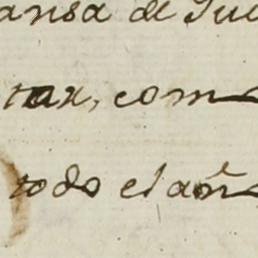 ansa de Jui
tar, com
todo el año